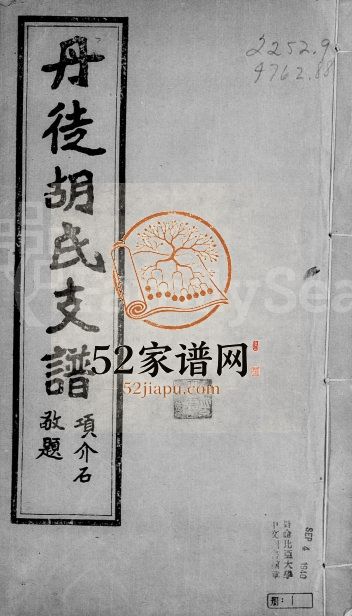 2252.9
4762.88
丹徒胡氏支譜
項介石
敬題
52家谱网
52jiapu.com
SEP 4 1940
冊：1